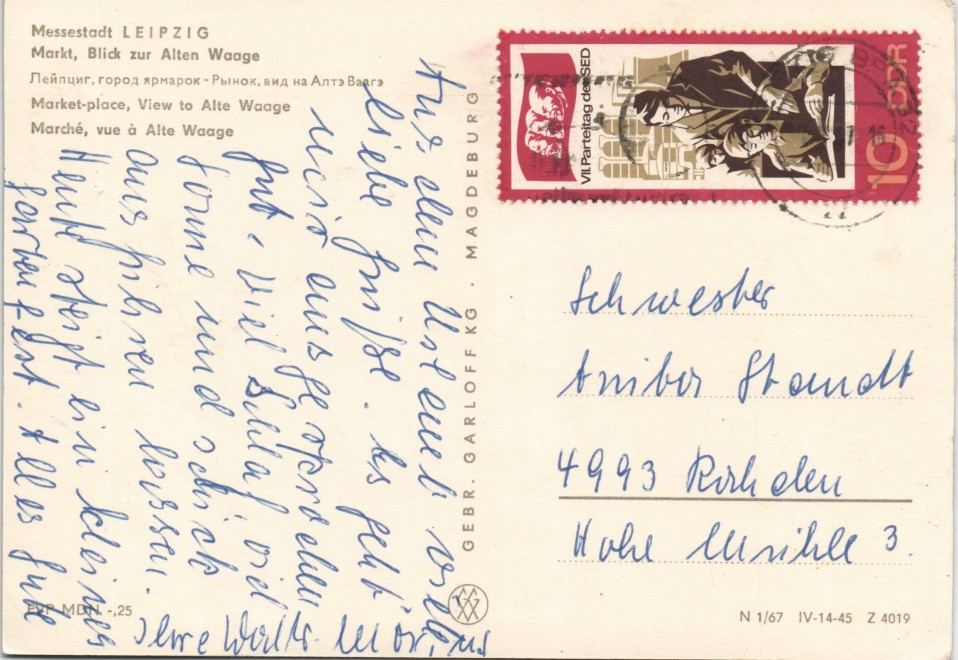 Messestadt LEIPZIG
Markt, Blick zur Alten Waage
Лейпциг, город ярмарок - Рынок, вид на Алтэ Ваагэ
Market-place, View to Alte Waage
Marché, vue à Alte Waage
Aus dem Urlaub viele
liebe Grüße. Es geht
uns ausgesprochen
gut. Viel Schlaf, viel
Sonne und
ausfahren lassen.
Heute steigt ein kleines
Gartenfest. Alles Gute
Ihre
EVP MDN -,25
GEBR. GARLOFF KG · MAGDEBURG
VII. Parteitag der SED
10 DDR
Schwester
Standt
4993 Rahden
Hohe Mühle 3.
N 1/67 IV-14-45 Z 4019